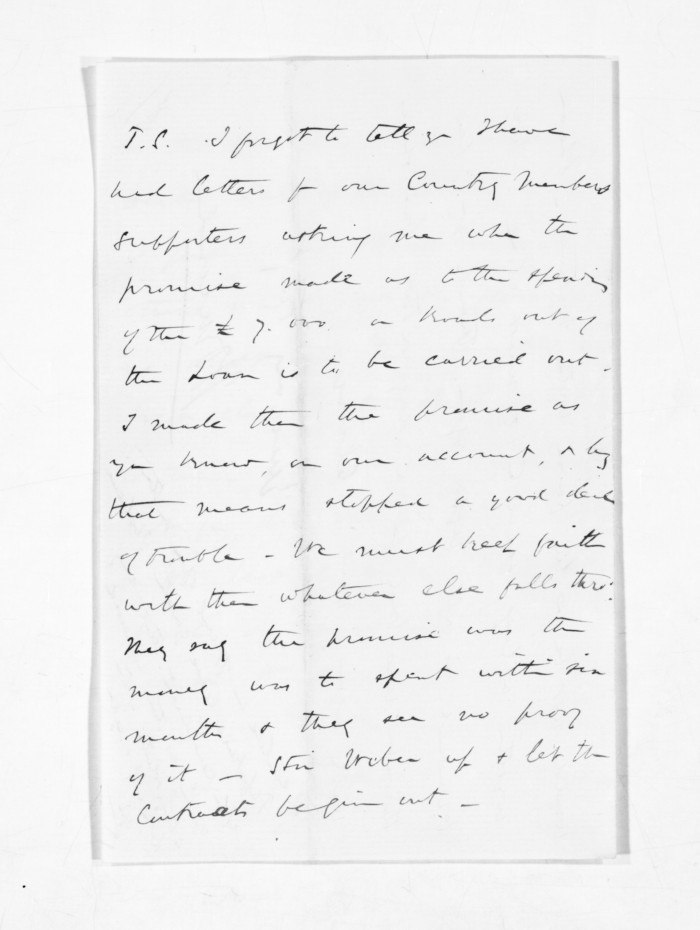 P.S. I forgot to tell you I have
had letters fr our Country Members
supporters asking me when the
promise made as to the spending
of the £ 7.000. on Roads out of
the Loan is to be carried out -
I made them the promise as
you know, on our account, & by
that means stopped a good deal
of trouble - We must keep faith
with them whatever else falls thro'.
They say the promise was the
money was to spent within six
months & they see no proof
of it - Stir Weber up & let the
Contracts begin out. -